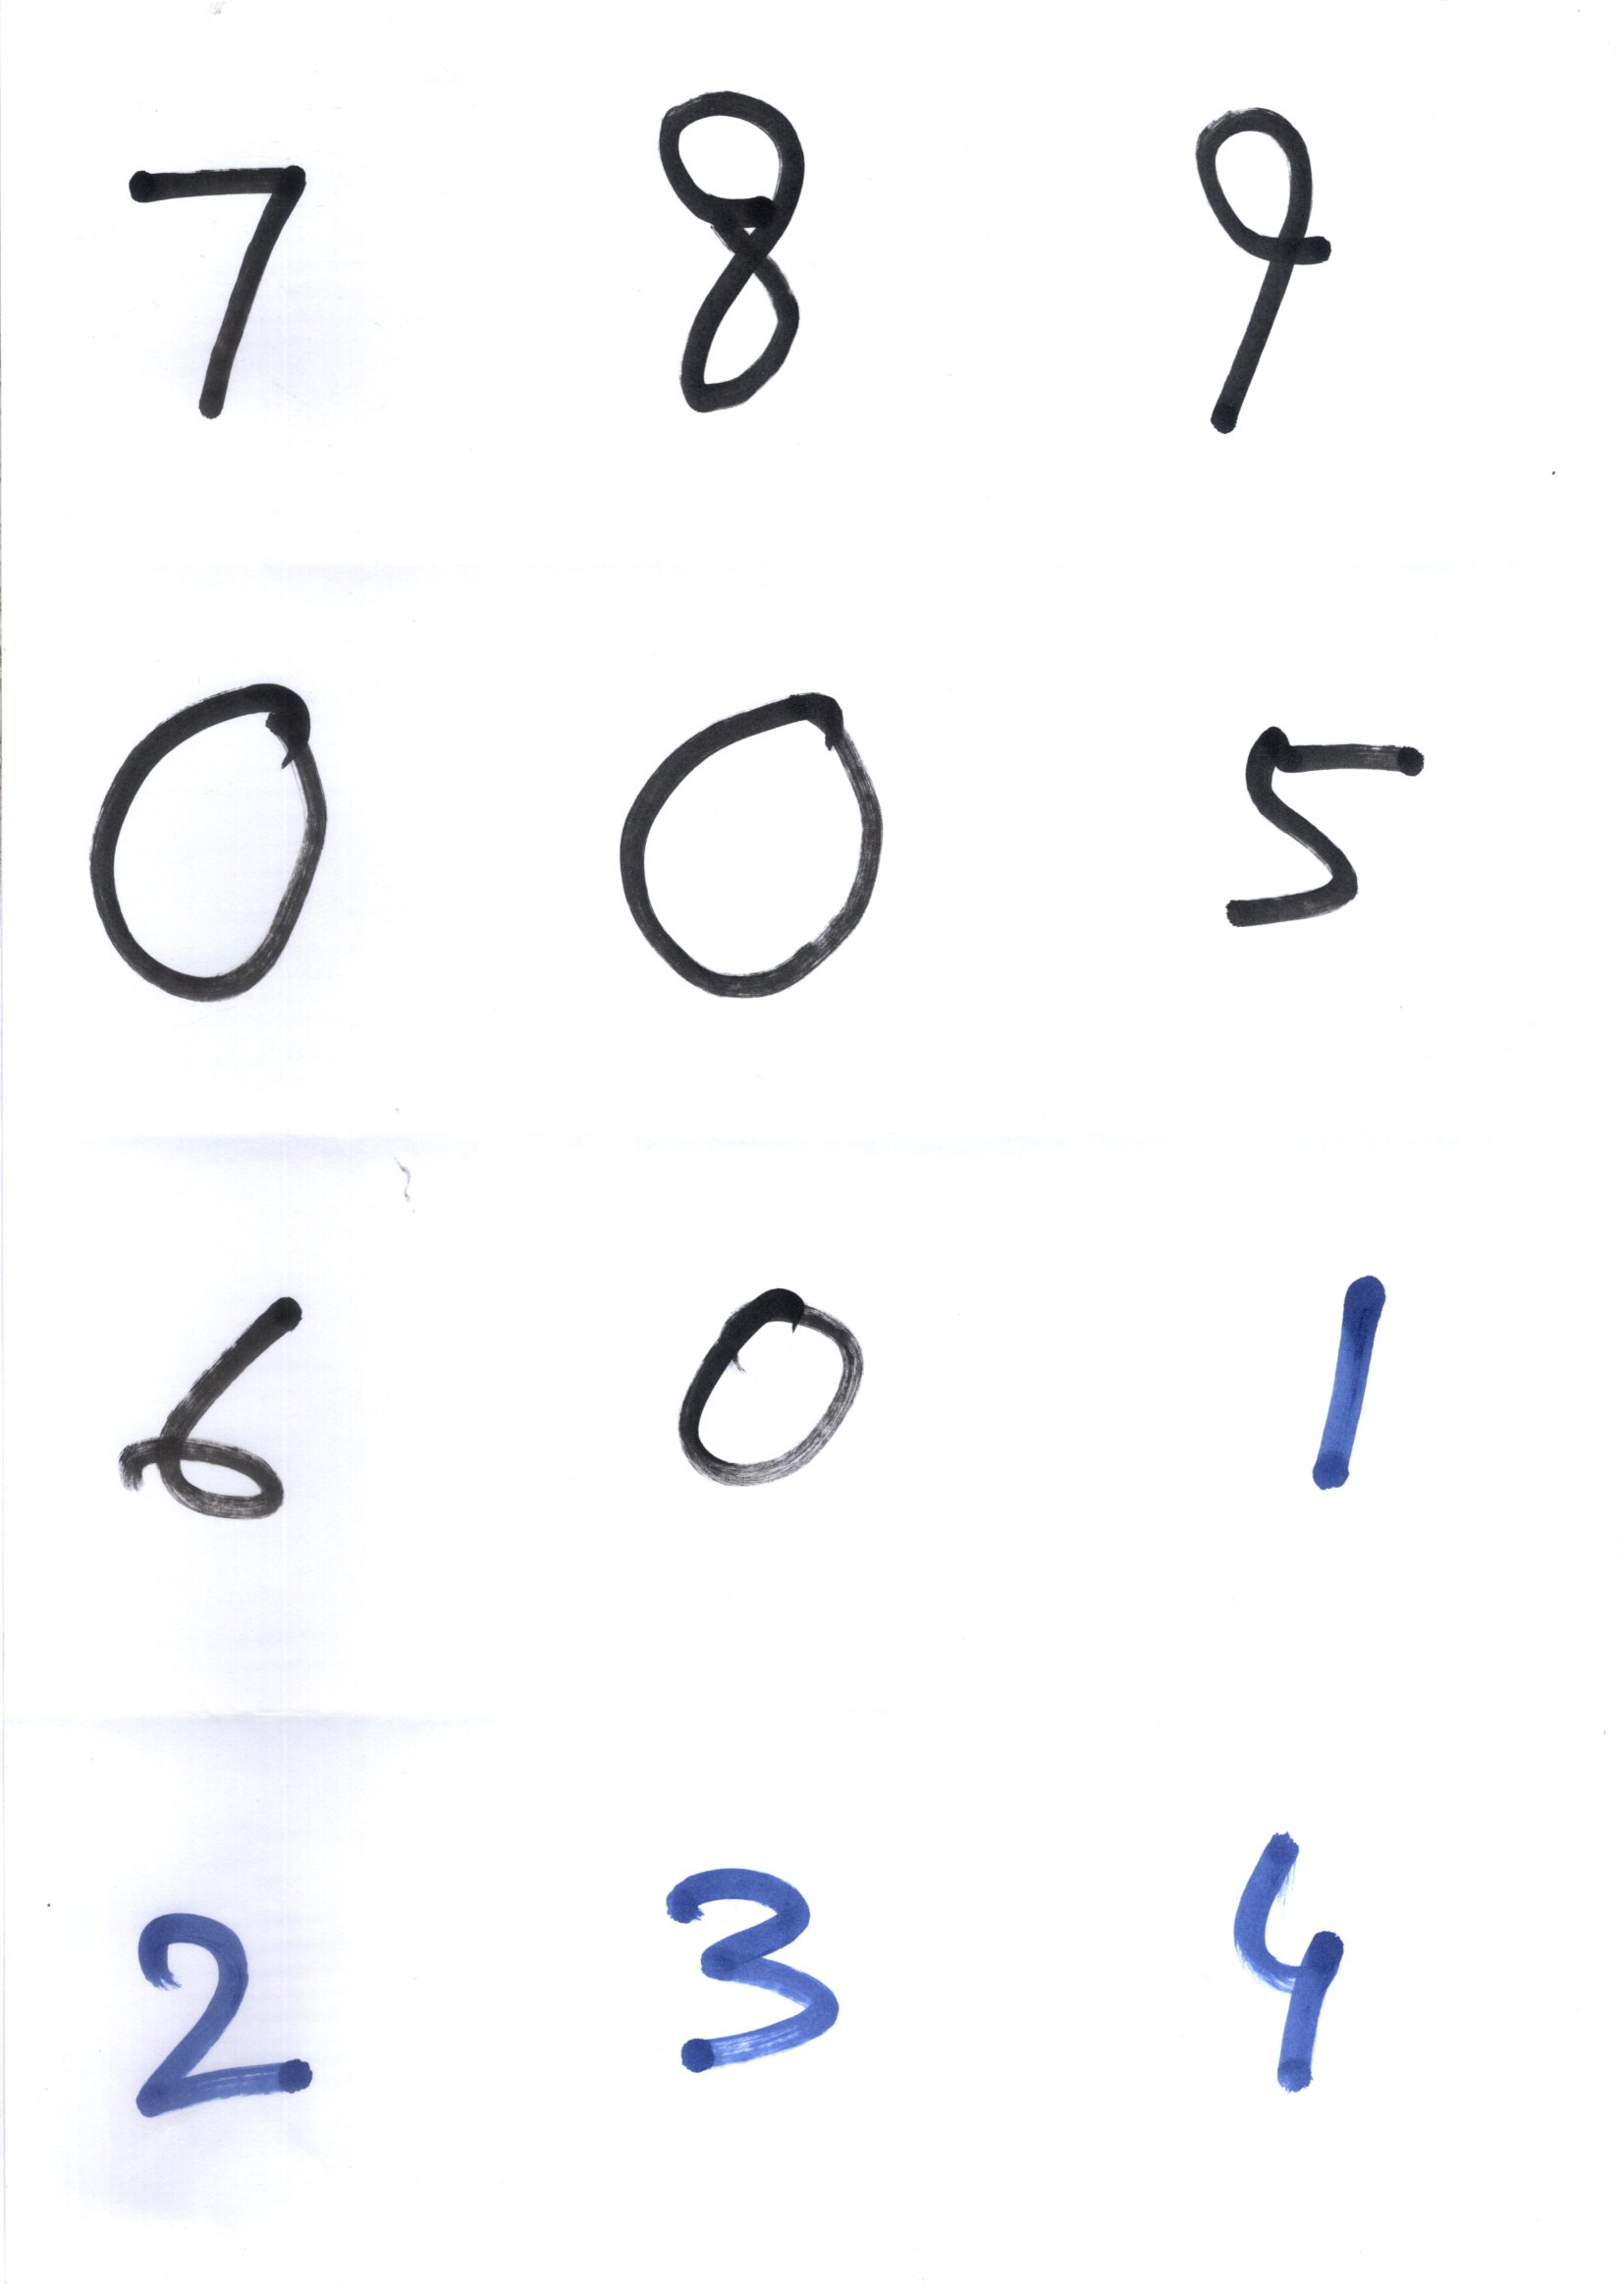 7 8 9
0 0 5
6 0 1
2 3 4